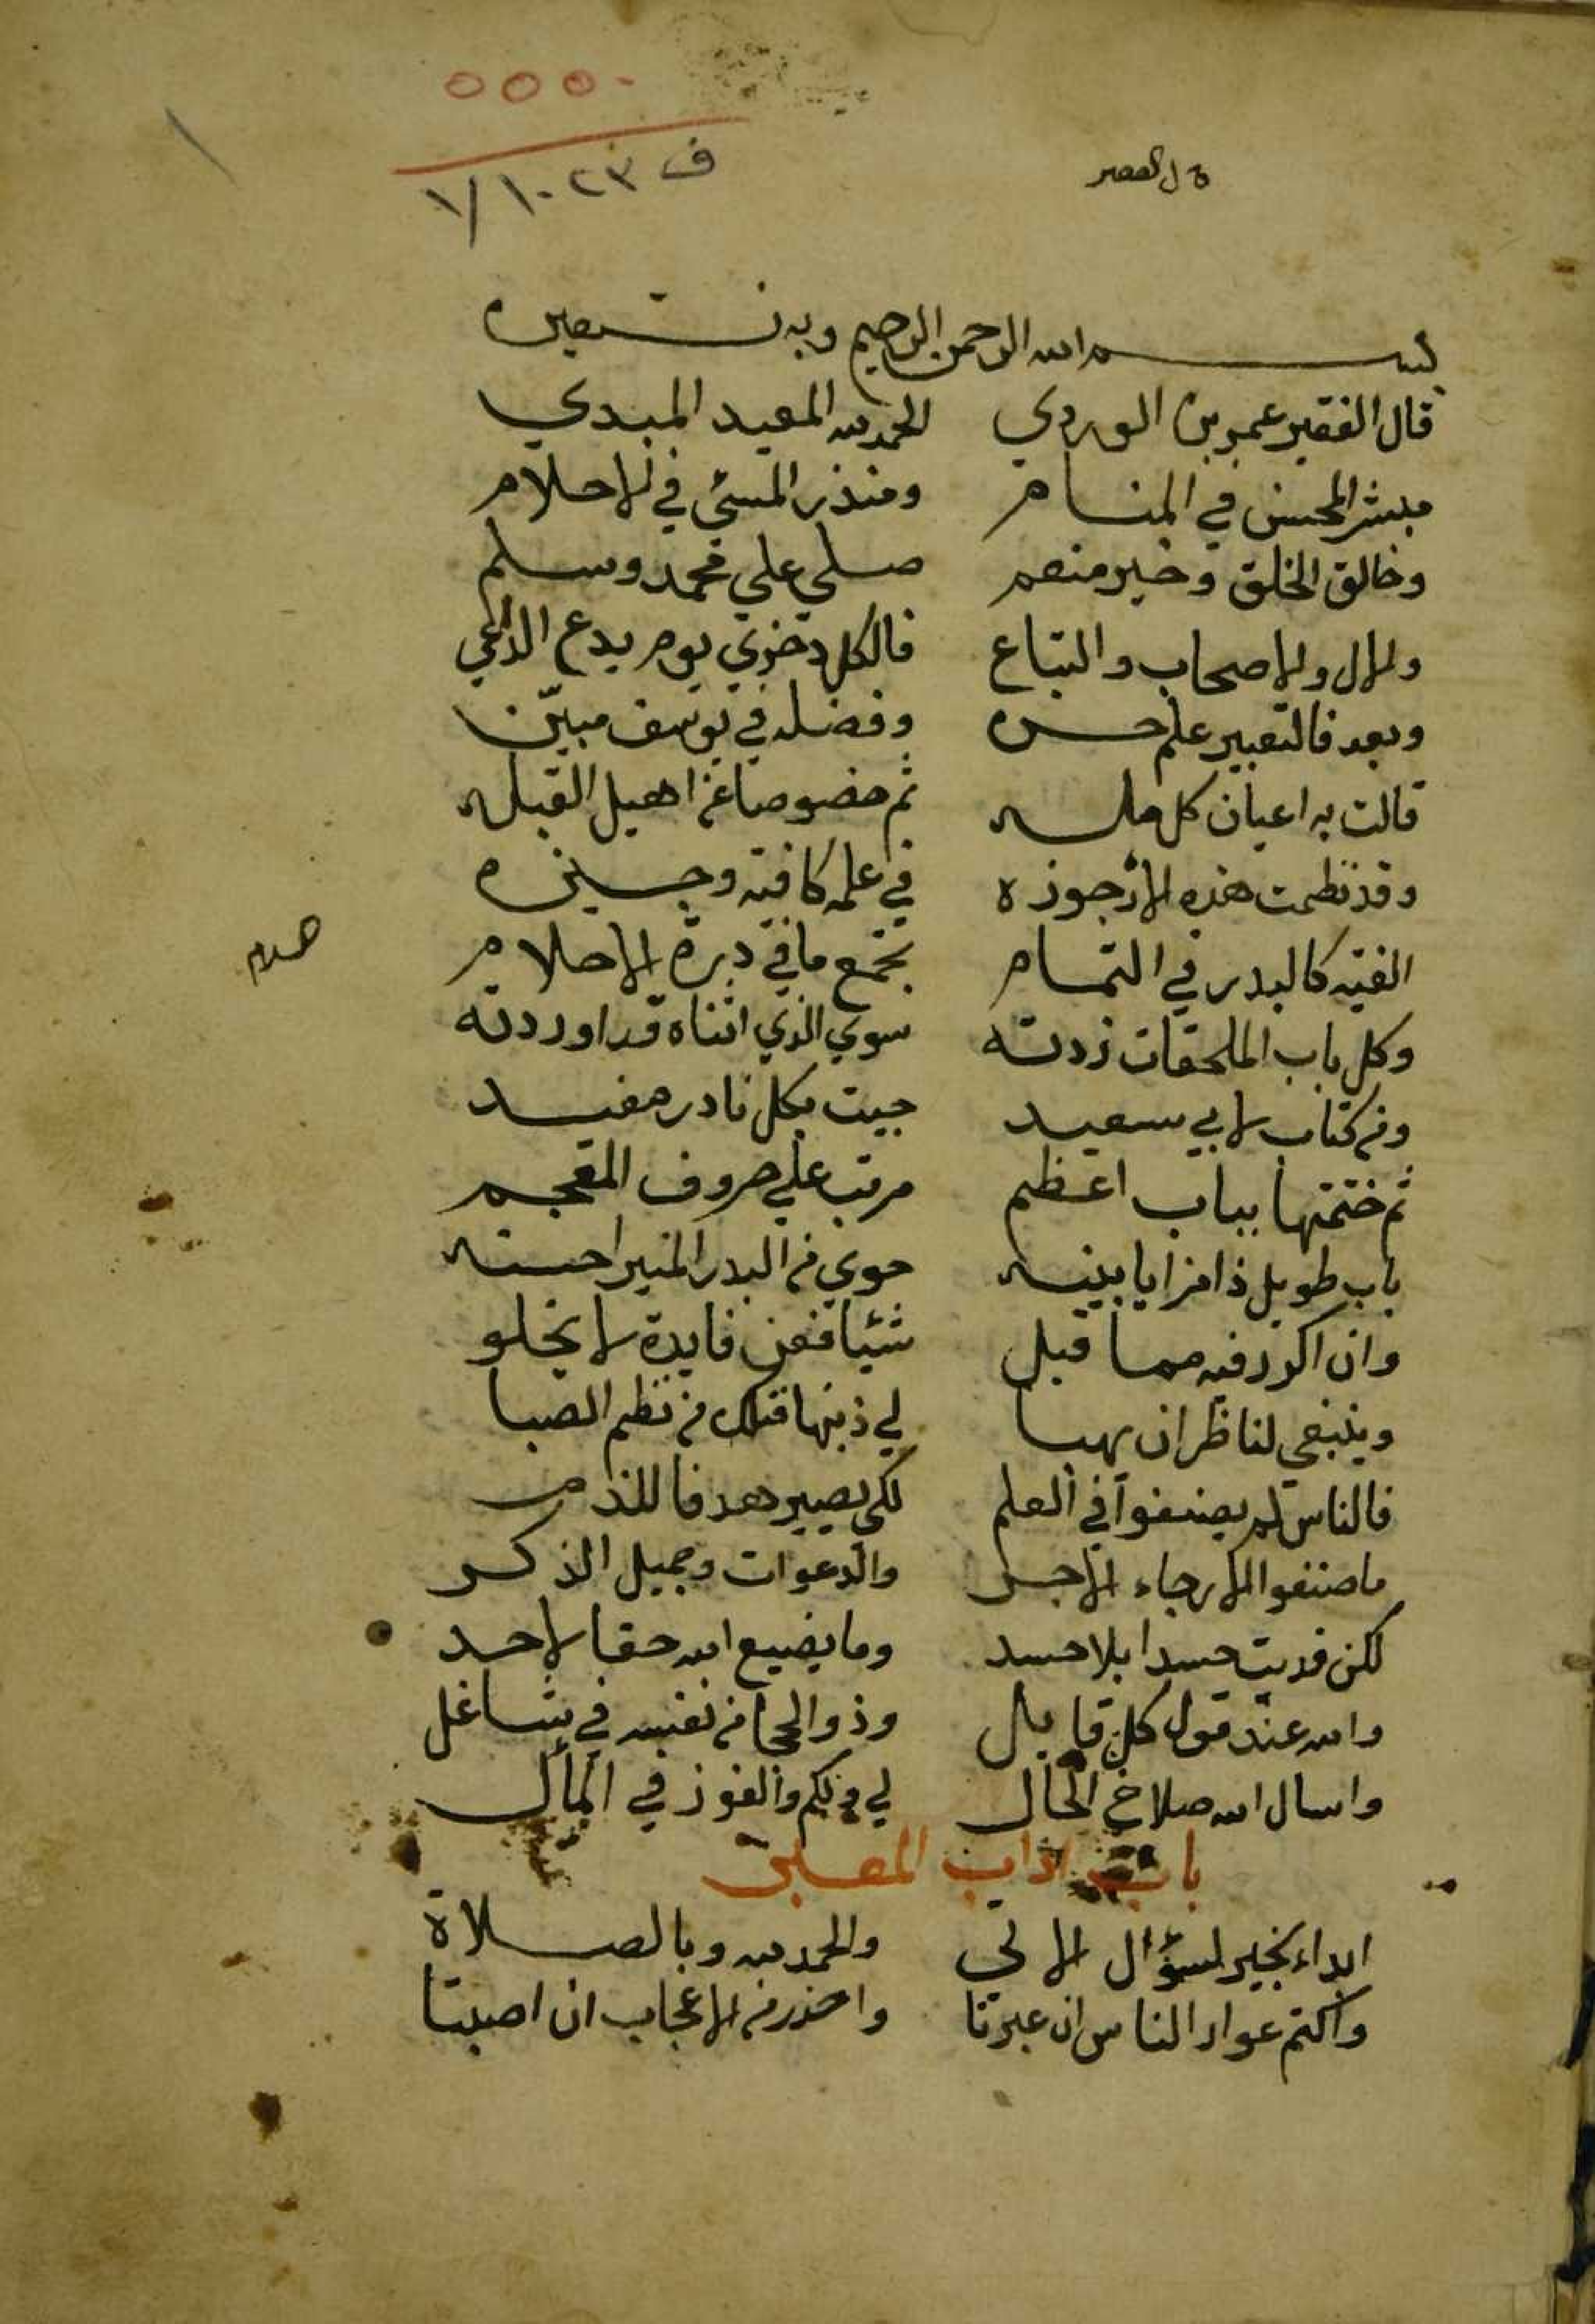 ٥٥٥٠
ف ١٠٢٣/١
بسم الله الرحمن الرحيم وبه نستعين
قال الفقير عمر بن الوردي الحمد لله المعيد المبدي
مبشر المحسن في المنام ومنذر المسئ في الاحلام
وخالق الخلق وخير منعم صلي علي محمد وسلم
والال والاصحاب والتباع فالكل ذخري يوم يدع الداعي
وبعد فالتعبير علم حسن وفضله في يوسف مبيّن
قالت به اعيان كل مله ثم خصوصا عن اهيل القبله
وقد نظمت هذه الارجوزه في علمه كافية وجيزه
الفية كالبدر في التمام تجمع ما في درة الاحلام
وكل باب الملحقات زدته سوي الذي اثناه قد اوردته
ومن كتاب لابي سعيد جيت بكل نادر مفيد
ثم ختمتها بباب اعظم مرتب علي حروف المعجم
باب طويل ذا مزايا بينه حوي من البدر المنير احسنه
وان اكرر فيه مما قبل شيا فعن فايدة لا يخلو
وينبغي لناظر ان يهبا لي ذنبها فتلك من نظم الصبا
فالناس لم يصنفوا في العلم لكي يصير هدفا للذم
ما صنفوا الا رجاء الاجر والدعوات وجميل الذكر
لكن فديت جسدا بلا حسد وما يضيع الله حقا لاحد
والله عند قول كل قايل وذو الحجا من نفسه في شاغل
واسال الله صلاح الحال لي ولكم والفوز في المآل
باب اداب المعبر
ابداء بخير لسؤال الاتي والحمد لله وبالصلاة
واكتم عوار الناس ان عبرتا واحذر من الاعجاب ان اصبتا